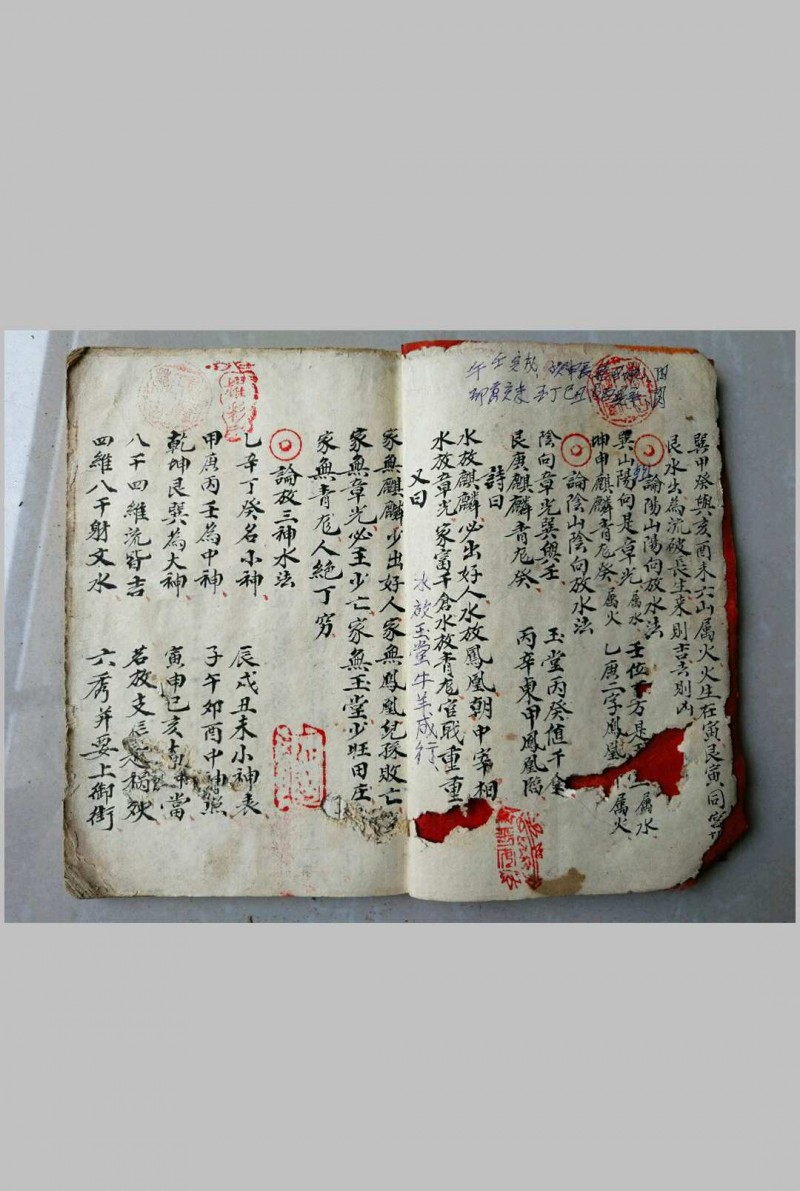 巽甲癸與亥酉未六山属火火生在寅艮寅同宮
艮水出為流破長生来則吉去則凶
論陽山陽向放水法
巽山陽向是章光属水 壬位 方是 属水
坤申麒麟青龙癸属火 乙庚二字鳳凰 属火
論陰山陰向放水法
陰向章光巽與壬 玉堂丙癸值千金
艮庚麒麟青龙癸 丙辛東甲鳳凰臨
詩曰
水放麒麟必出好人水放鳳凰朝中宰相
水放章光家富千倉水放青龙官戰重重
又曰 水放玉堂牛羊成行
家無麒麟少出好人家無鳳凰兒孫敗亡
家無章光必主少亡家無玉堂少旺田庄
家無青龙人絕丁穷
論放三神水法
乙辛丁癸名小神 辰戌丑未小神表
甲庚丙壬為中神 子午卯酉中神照
乾坤艮巽為大神 寅申巳亥 中當
八干四維流皆吉 若放支辰 禍妖
四維八干射文水 六秀并要上御街